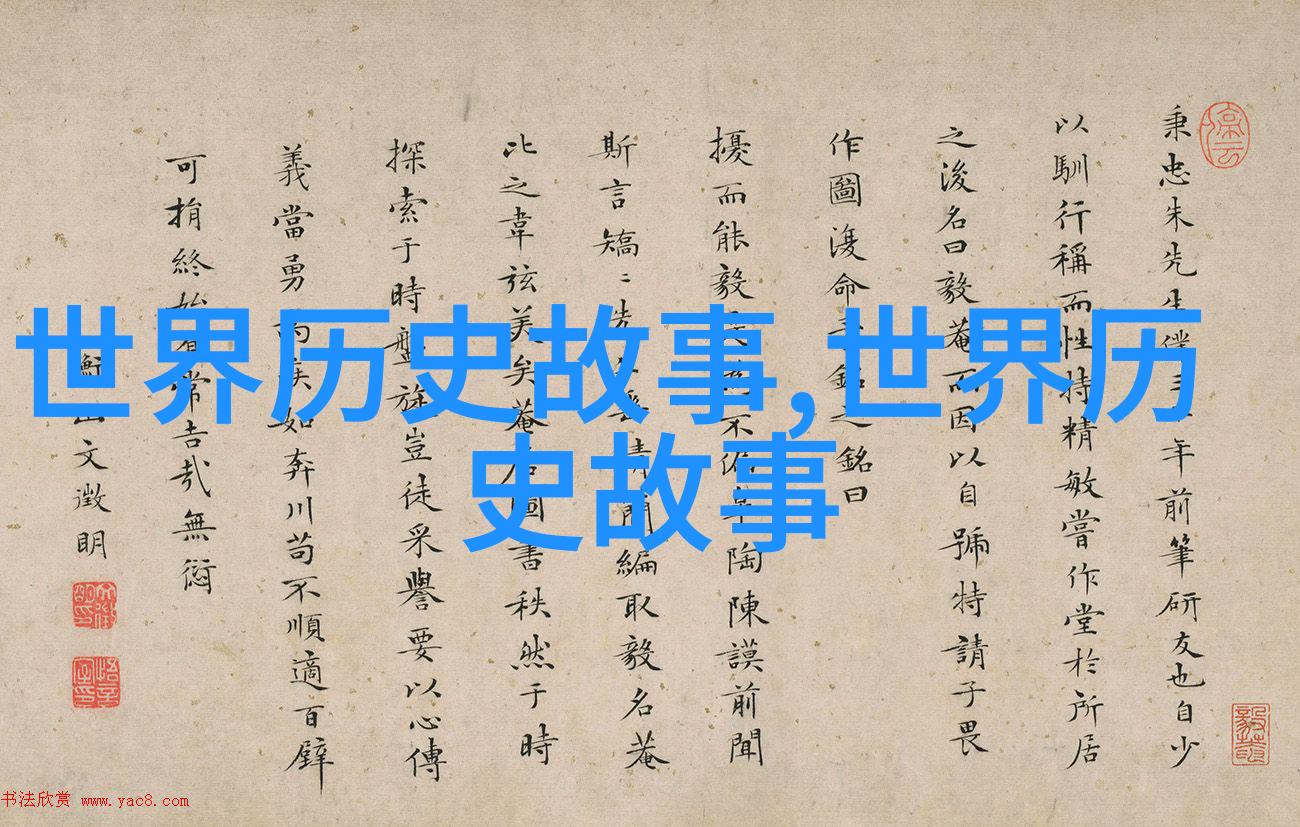 世界历史故事,世界历
史故事
秉忠朱先生僕三十年前筆研友也自少
以馴行稱而性特精敏嘗作堂於所居
之後名曰毅菴而因以自號特請子畏
作圖復命予銘之銘曰
擾而能毅 不 陶陳謨前聞
斯言矯〻先 編取毅名菴
比之韋弦美矣菴 圖書秩然于時
探索于時盤旋豈徒采譽要以心傳
義當勇 如奔川苟不順適百壁
可捐終始有常吉哉無愆
衡山文徵明
书法欣赏 www.yac8.com